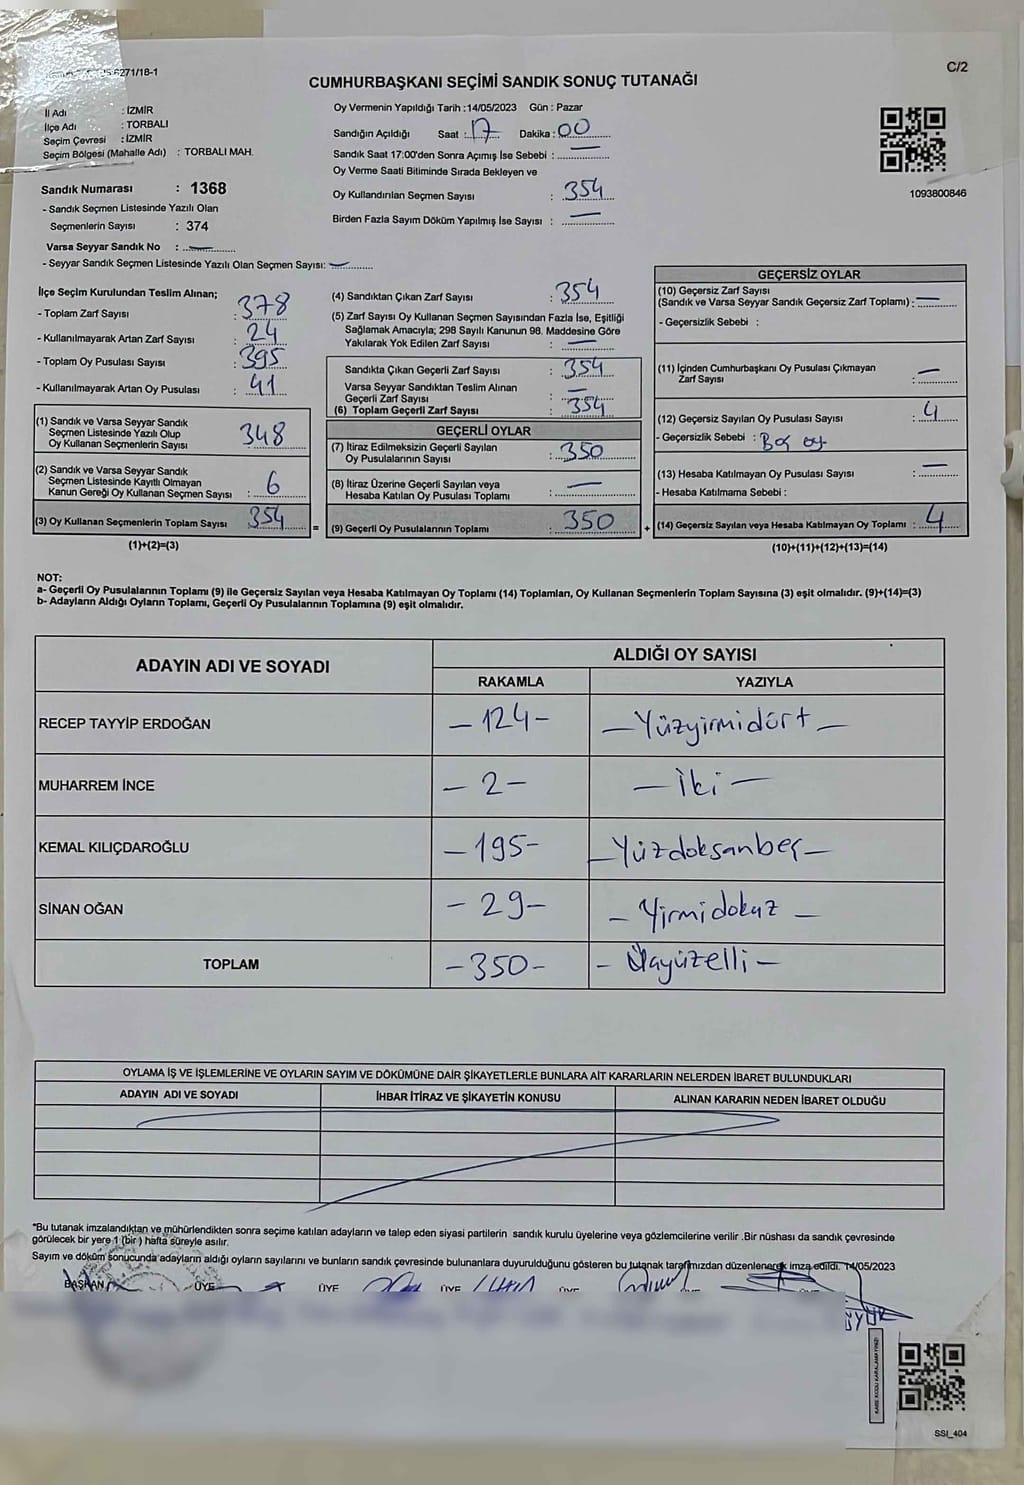 6271/18-1
C/2
CUMHURBAŞKANI SEÇİMİ SANDIK SONUÇ TUTANAĞI
İl Adı : İZMİR
İlçe Adı : TORBALI
Seçim Çevresi : İZMİR
Seçim Bölgesi (Mahalle Adı) : TORBALI MAH.
Sandık Numarası : 1368
- Sandık Seçmen Listesinde Yazılı Olan
Seçmenlerin Sayısı : 374
Varsa Seyyar Sandık No : —
- Seyyar Sandık Seçmen Listesinde Yazılı Olan Seçmen Sayısı: —
Oy Vermenin Yapıldığı Tarih :14/05/2023 Gün : Pazar
Sandığın Açıldığı Saat : 17 Dakika : 00
Sandık Saat 17:00'den Sonra Açımış İse Sebebi : —
Oy Verme Saati Bitiminde Sırada Bekleyen ve
Oy Kullandırılan Seçmen Sayısı : 354
Birden Fazla Sayım Döküm Yapılmış İse Sayısı : —
1093800846
İlçe Seçim Kurulundan Teslim Alınan;
- Toplam Zarf Sayısı : 378
- Kullanılmayarak Artan Zarf Sayısı : 24
- Toplam Oy Pusulası Sayısı : 395
- Kullanılmayarak Artan Oy Pusulası : 41
(1) Sandık ve Varsa Seyyar Sandık
Seçmen Listesinde Yazılı Olup
Oy Kullanan Seçmenlerin Sayısı 348
(2) Sandık ve Varsa Seyyar Sandık
Seçmen Listesinde Kayıtlı Olmayan
Kanun Gereği Oy Kullanan Seçmen Sayısı : 6
(3) Oy Kullanan Seçmenlerin Toplam Sayısı 354
(1)+(2)=(3)
(4) Sandıktan Çıkan Zarf Sayısı : 354
(5) Zarf Sayısı Oy Kullanan Seçmen Sayısından Fazla İse, Eşitliği
Sağlamak Amacıyla; 298 Sayılı Kanunun 98. Maddesine Göre
Yakılarak Yok Edilen Zarf Sayısı : —
Sandıkta Çıkan Geçerli Zarf Sayısı : 354
Varsa Seyyar Sandıktan Teslim Alınan
Geçerli Zarf Sayısı : —
(6) Toplam Geçerli Zarf Sayısı : 354
GEÇERLİ OYLAR
(7) İtiraz Edilmeksizin Geçerli Sayılan
Oy Pusulalarının Sayısı : 350
(8) İtiraz Üzerine Geçerli Sayılan veya
Hesaba Katılan Oy Pusulası Toplamı : —
= (9) Geçerli Oy Pusulalarının Toplamı : 350 +
GEÇERSİZ OYLAR
(10) Geçersiz Zarf Sayısı
(Sandık ve Varsa Seyyar Sandık Geçersiz Zarf Toplamı) : —
- Geçersizlik Sebebi :
(11) İçinden Cumhurbaşkanı Oy Pusulası Çıkmayan
Zarf Sayısı : —
(12) Geçersiz Sayılan Oy Pusulası Sayısı : 4
- Geçersizlik Sebebi : Boş oy
(13) Hesaba Katılmayan Oy Pusulası Sayısı : —
- Hesaba Katılmama Sebebi :
(14) Geçersiz Sayılan veya Hesaba Katılmayan Oy Toplamı : 4
(10)+(11)+(12)+(13)=(14)
NOT:
a- Geçerli Oy Pusulalarının Toplamı (9) ile Geçersiz Sayılan veya Hesaba Katılmayan Oy Toplamı (14) Toplamları, Oy Kullanan Seçmenlerin Toplam Sayısına (3) eşit olmalıdır. (9)+(14)=(3)
b- Adayların Aldığı Oyların Toplamı, Geçerli Oy Pusulalarının Toplamına (9) eşit olmalıdır.
ADAYIN ADI VE SOYADI
ALDIĞI OY SAYISI
RAKAMLA YAZIYLA
RECEP TAYYİP ERDOĞAN —124— —Yüzyirmidört—
MUHARREM İNCE —2— —İki—
KEMAL KILIÇDAROĞLU —195— —Yüzdoksanbeş—
SİNAN OĞAN —29— —Yirmidokuz—
TOPLAM —350— —Üçyüzelli—
OYLAMA İŞ VE İŞLEMLERİNE VE OYLARIN SAYIM VE DÖKÜMÜNE DAİR ŞİKAYETLERLE BUNLARA AİT KARARLARIN NELERDEN İBARET BULUNDUKLARI
ADAYIN ADI VE SOYADI İHBAR İTİRAZ VE ŞİKAYETİN KONUSU ALINAN KARARIN NEDEN İBARET OLDUĞU
*Bu tutanak imzalandıktan ve mühürlendikten sonra seçime katılan adayların ve talep eden siyasi partilerin sandık kurulu üyelerine veya gözlemcilerine verilir .Bir nüshası da sandık çevresinde
görülecek bir yere 1 (bir ) hafta süreyle asılır.
Sayım ve döküm sonucunda adayların aldığı oyların sayılarını ve bunların sandık çevresinde bulunanlara duyurulduğunu gösteren bu tutanak tarafımızdan düzenlenerek imza edildi. 14/05/2023
BAŞKAN ÜYE ÜYE ÜYE ÜYE
SSİ_404